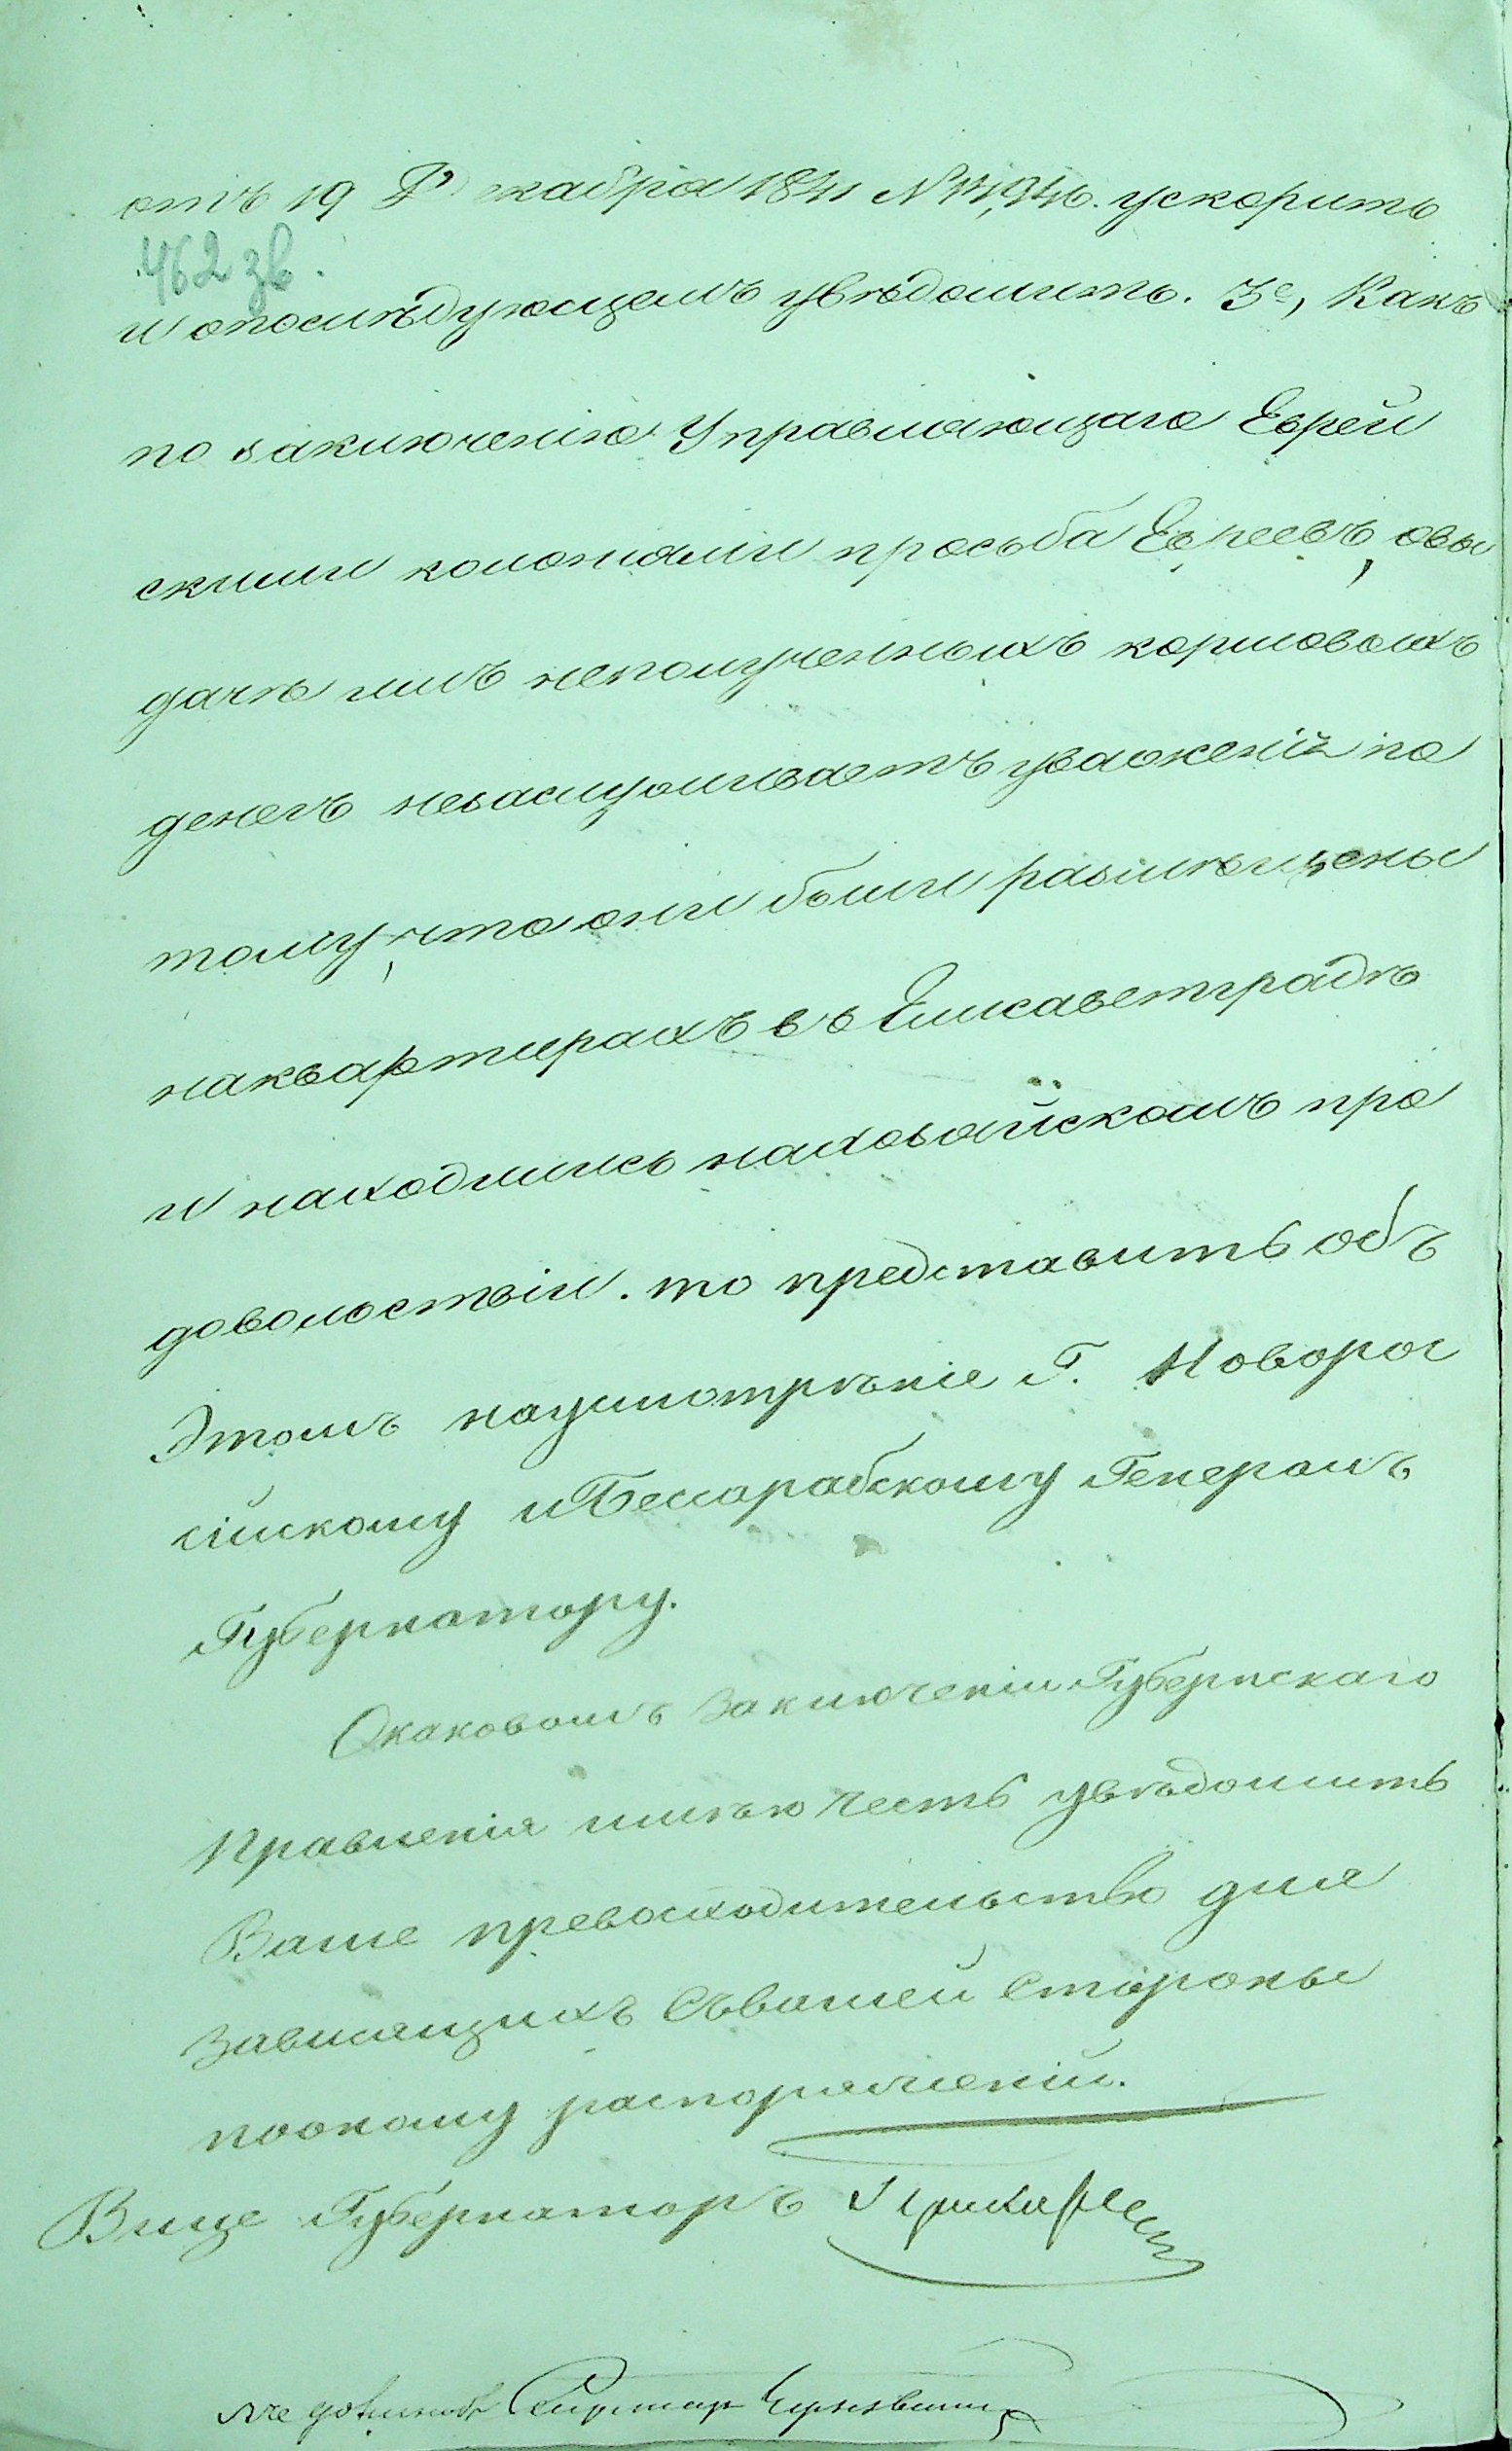 отъ 19 Декабря 1841 N 11,946. ускорить
462 зв.
и опослѣдующемъ увѣдомить. 3е, Какъ
по заключенію Управляющаго Еврей
скими колоніями просьба Евреевъ, овы
дачѣ имъ неполученныхъ кормовыхъ
денегъ незаслуживаетъ уваженія по
тому, что они были размѣщены
наквартирахъ въ Елисаветградѣ
и находились нахозяйскомъ про
довольствіи. то представить объ
Этомъ наусмотрѣніе Г. Новорос
сійскому и Бессарабскому Генералъ
Губернатору.
Окаковомъ Заключеніи Губернскаго
Правленія имѣю честь увѣдомить
Ваше превосходительство для
Зависящихъ Съвашей Стороны
поономy распоряженій.
Вице Губернаторъ